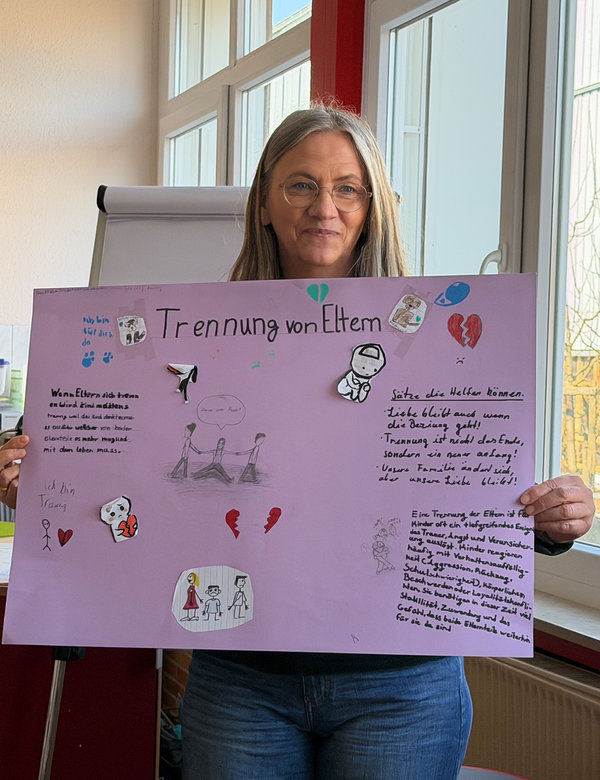 Trennung von Eltern
für dich
da
Wenn Eltern sich trenn
en wird kind meistens
traurig weil das kind denkt es mus
es
von beiden
mit dem leben muss.
Ich bin
Traurig
Sätze die Helfen können.
· Liebe bleibt auch wenn
die Beziung geht!
· Trennung ist nicht das Ende,
sondern ein neuer anfang!
· Unsere Familie ändert sich,
aber unsere Liebe bleibt!
Eine Trennung der Eltern ist für
Kinder oft ein tiefgreifendes Ereignis
das Trauer, Angst und Verunsicher-
ung auslöst. Kinder reagieren
häufig mit Verhaltensauffällig-
keit (Aggression, Rückzug,
Schulschwierigkeit), körperlichen
Beschwerden oder Loyalitätskonfli-
kten. Sie benötigen in dieser Zeit viel
Stabilität, Zuwendung und das
Gefühl, dass beide Elternteile weiterhin
für sie da sind